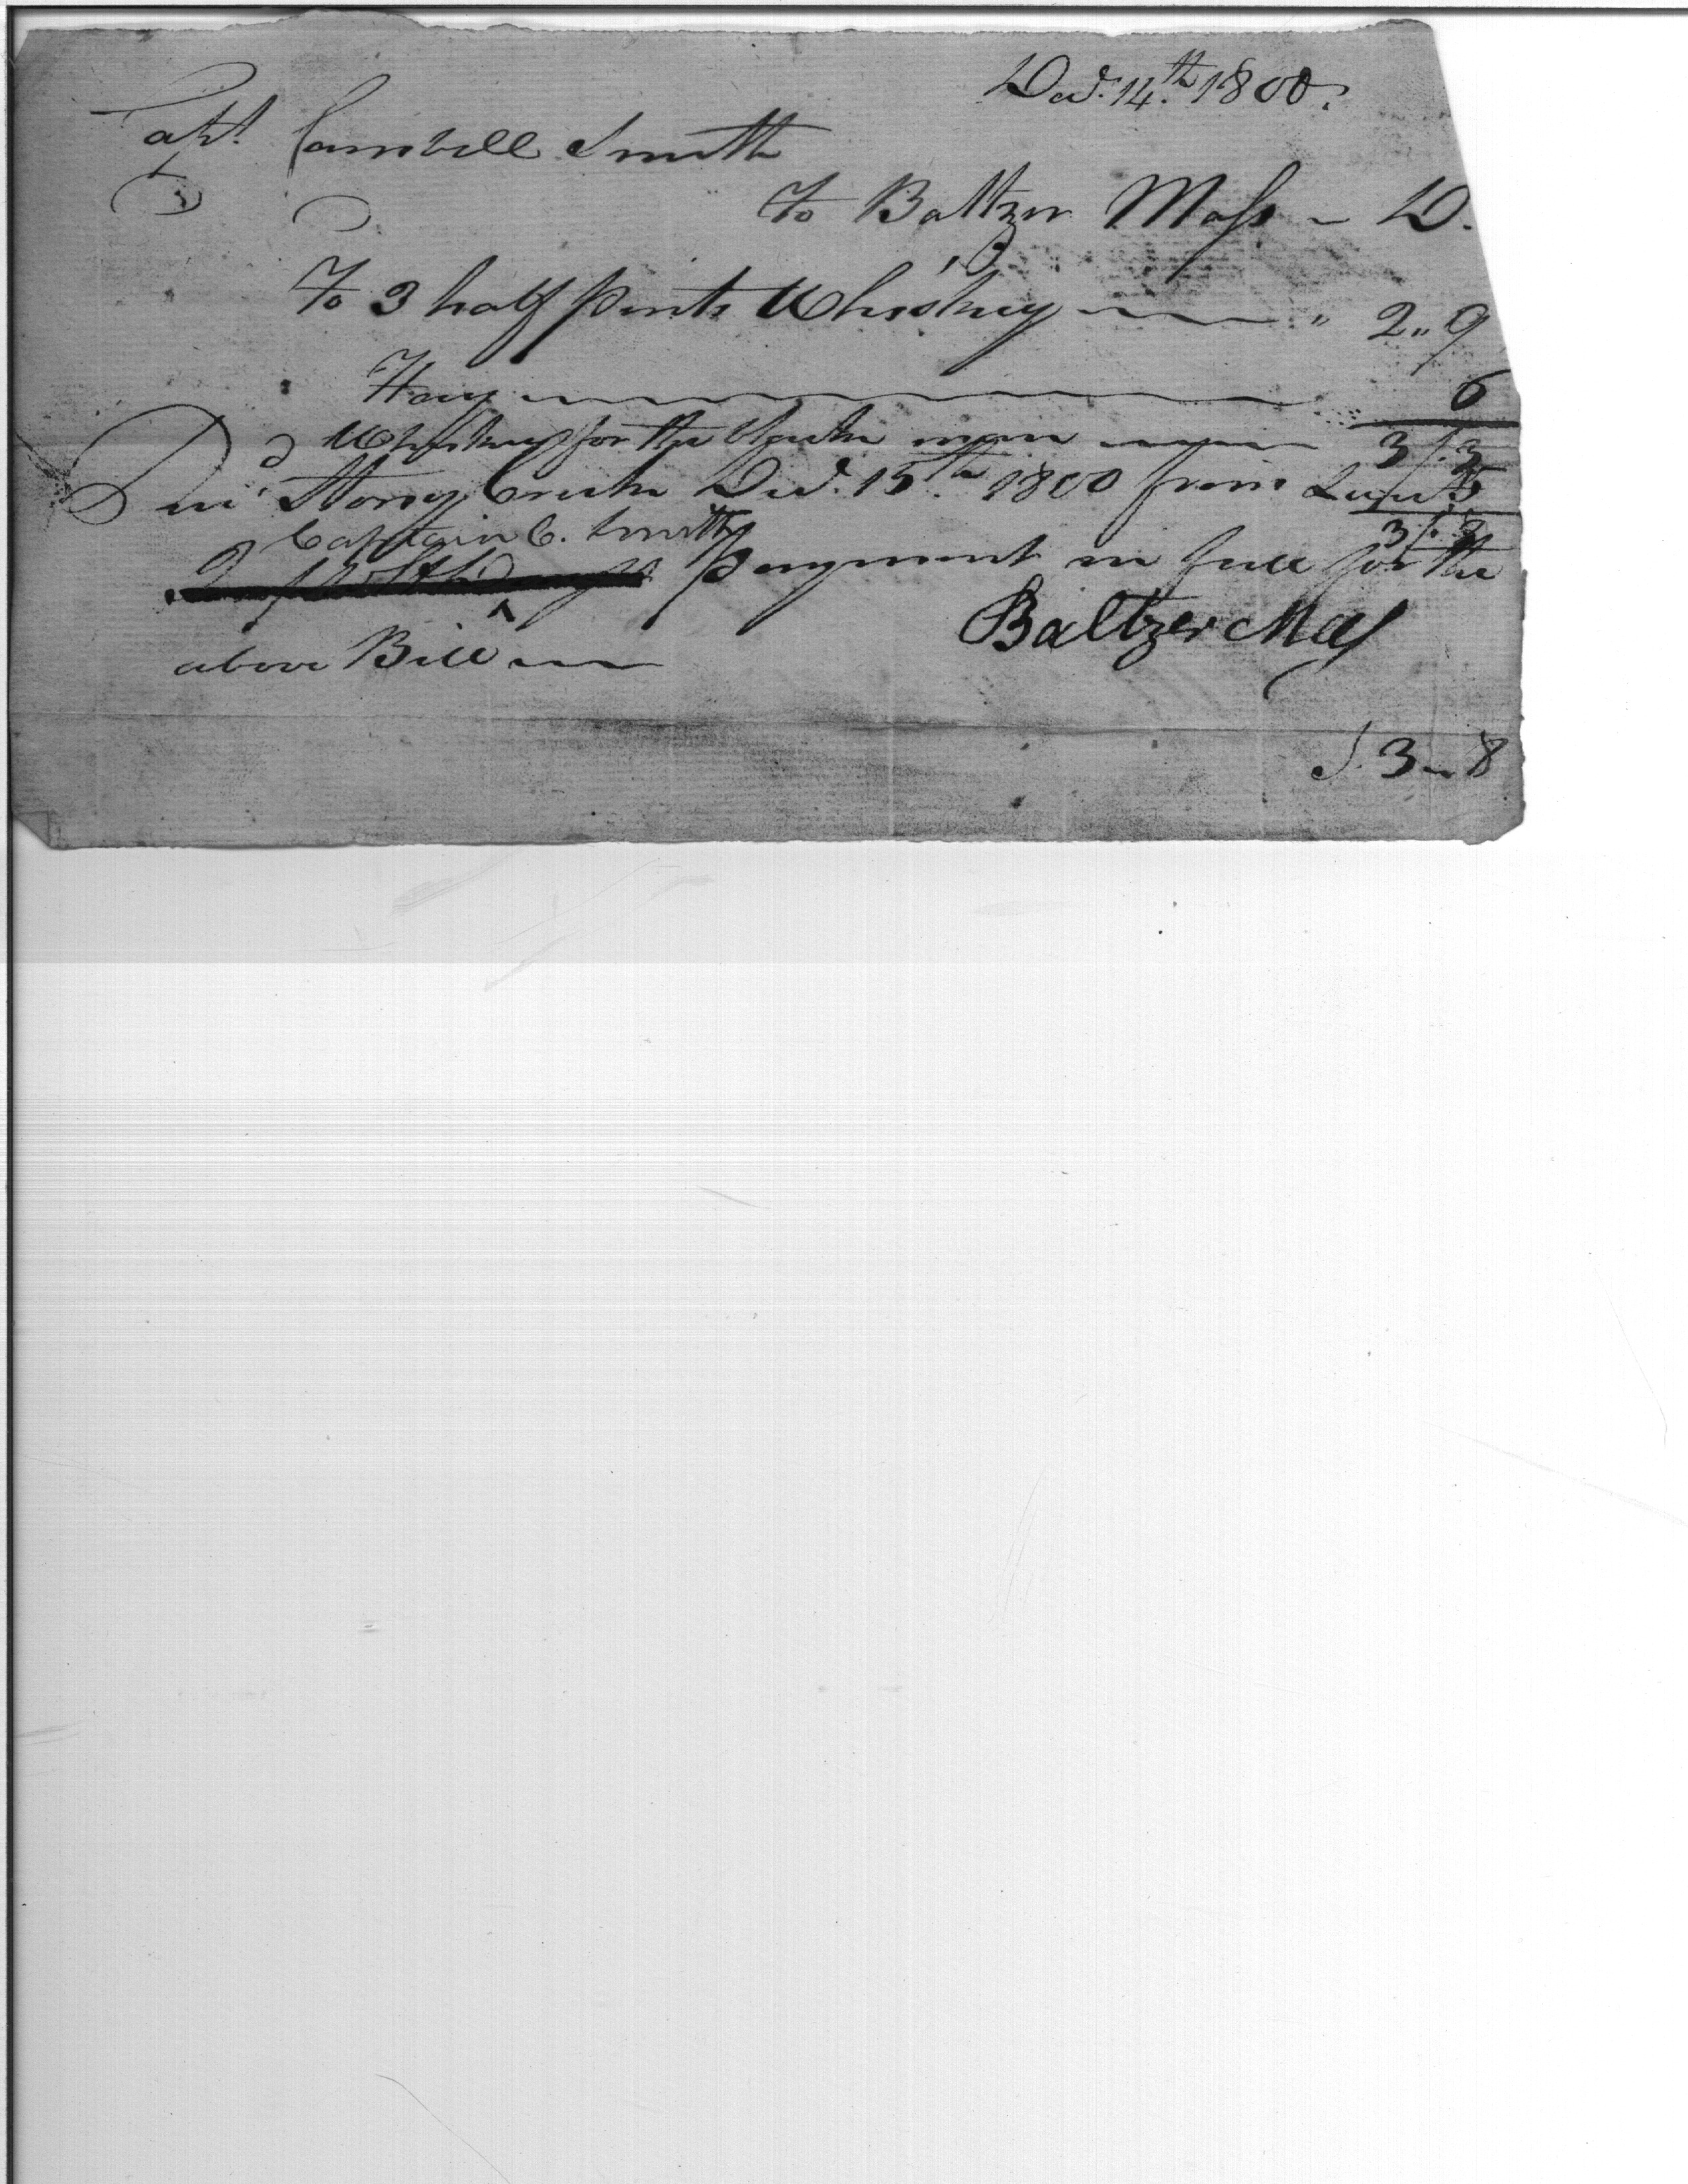 Decr. 14th 1800.
Capt. Cambell Smith
To Baltzer Mass ~ D.
To 3 half pints Whiskey " 2 " 9
Hay 6
3/.3
Whiskey for the black man 5
Recd. Stony Creek Decr. 15th 1800 from
3/. 8
Captain C. Smith
payment in full for the
above Bill
Baltzer Mass
S. 3 ~ 8